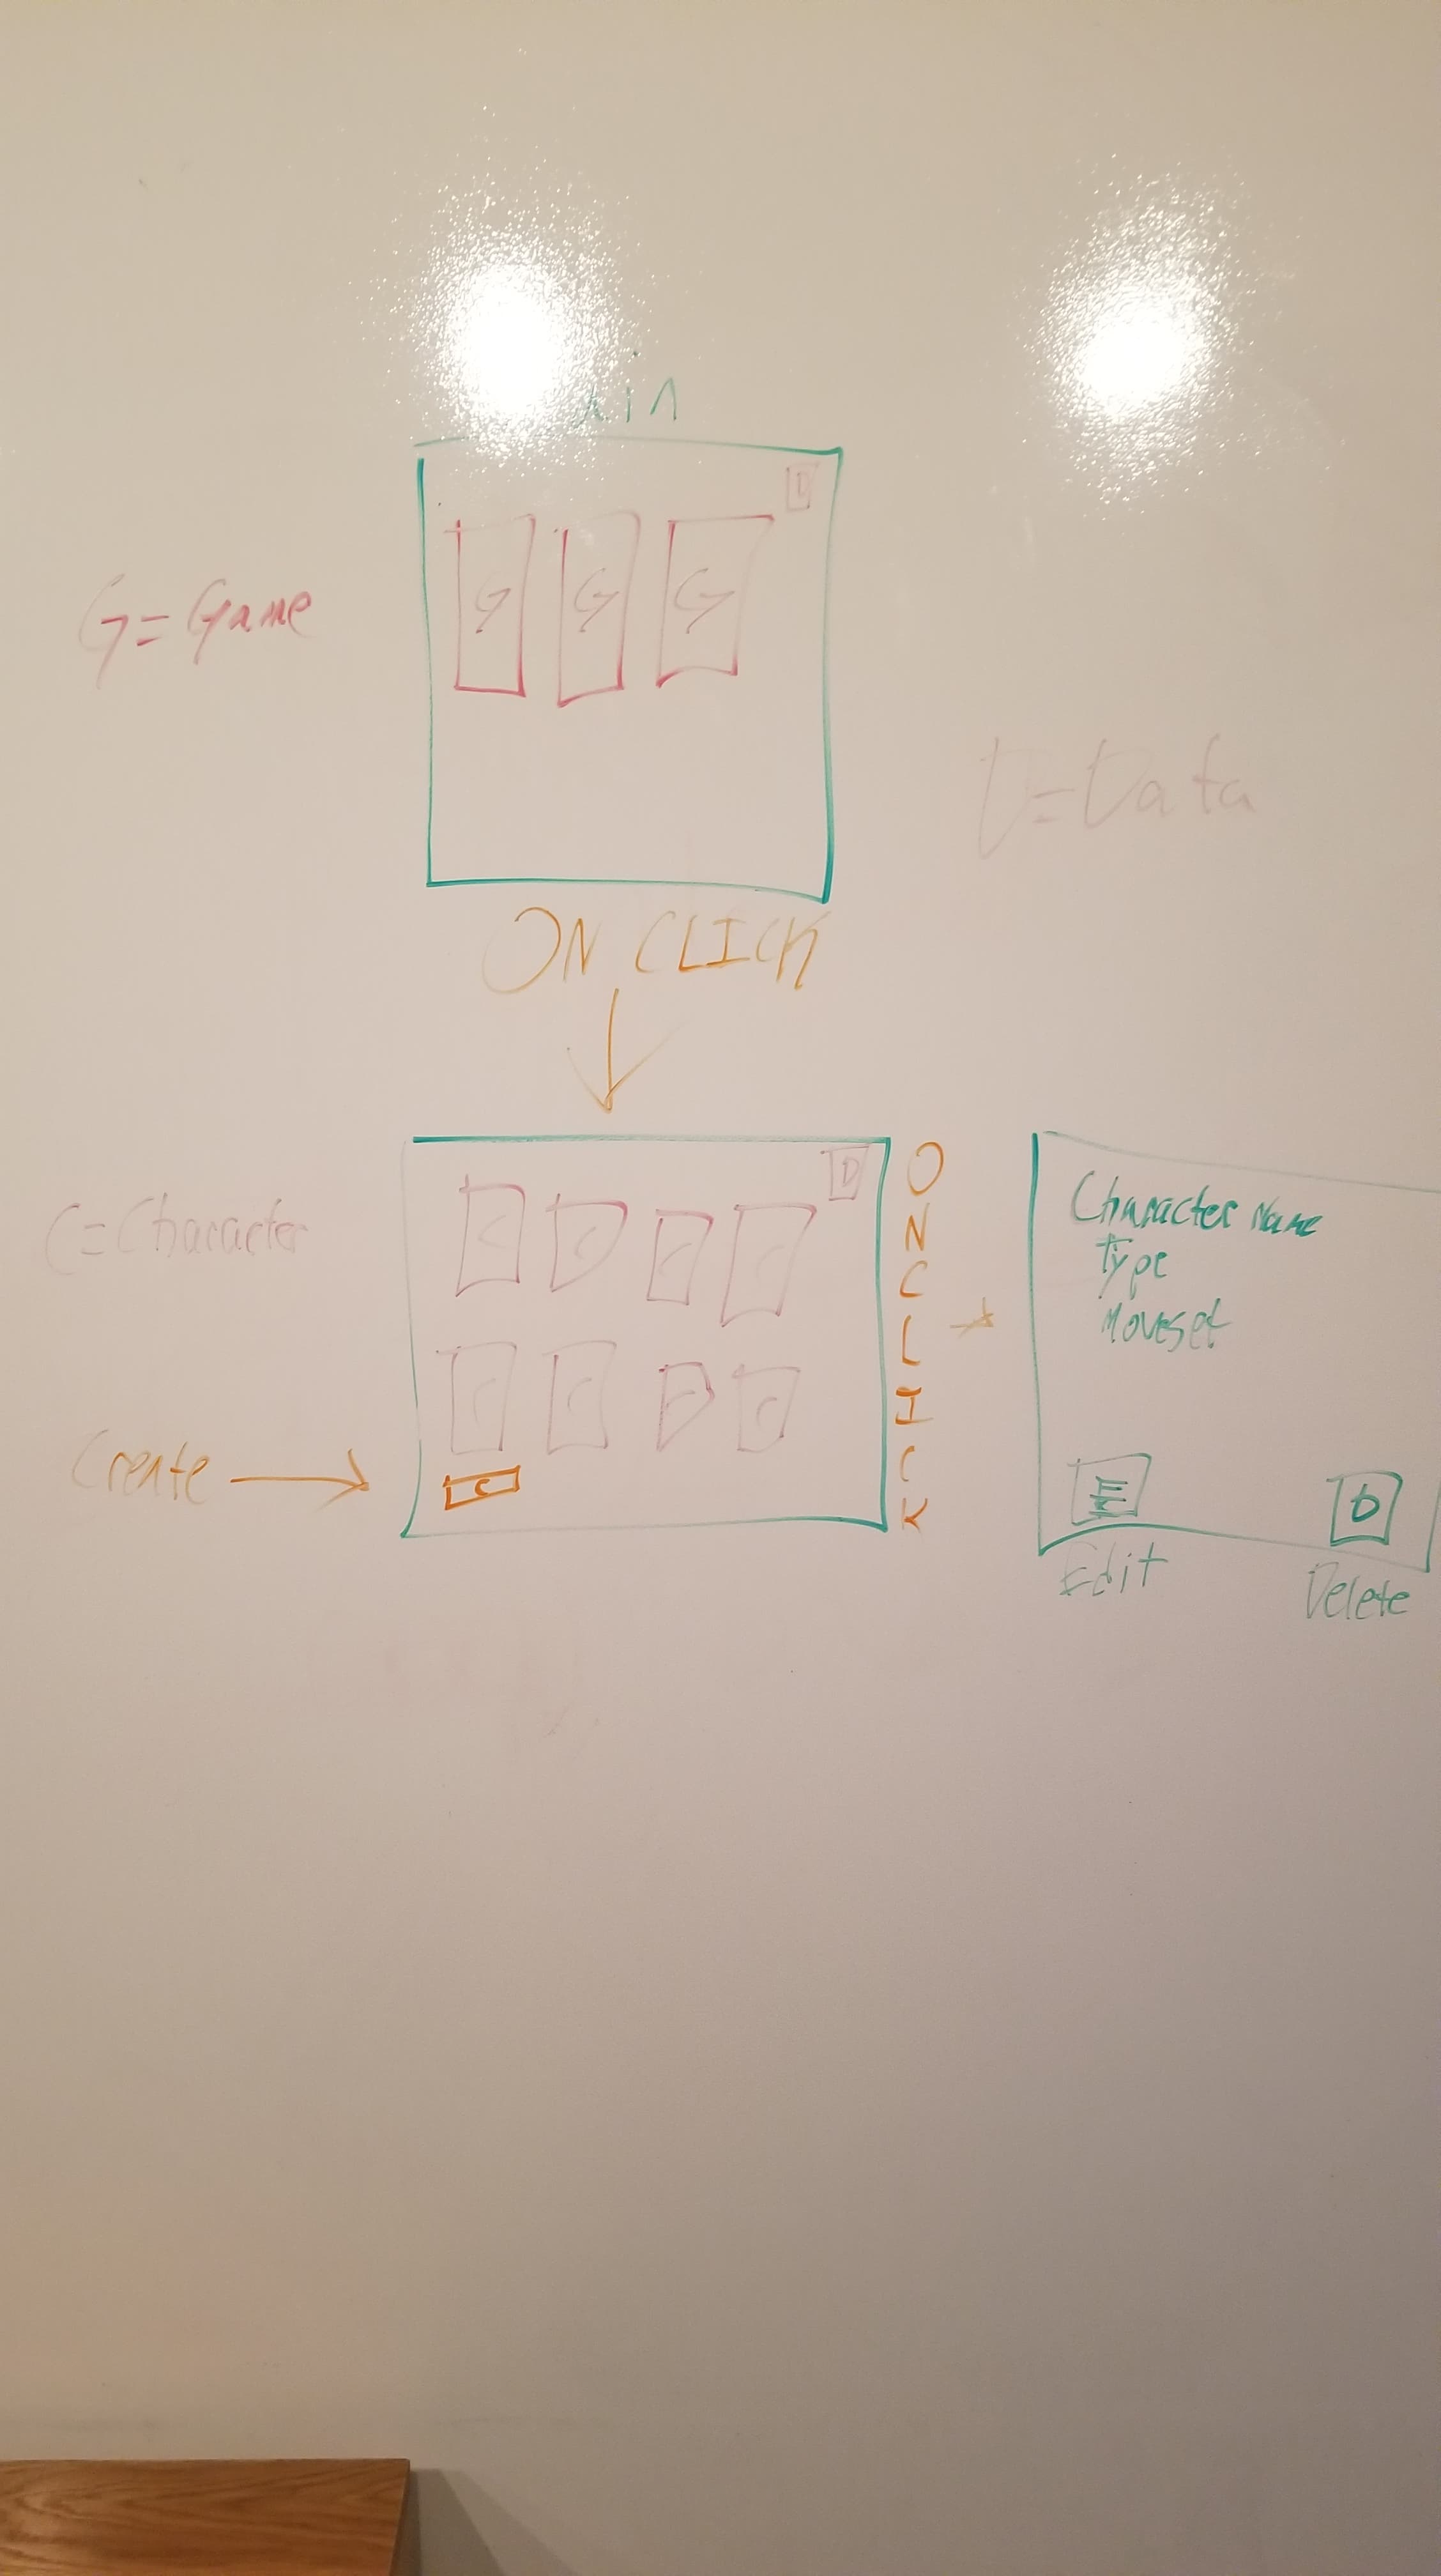 D
G G G
G=Game
D=Data
ON CLICK
D
C C C C
C=Character
C C C C
Create
C
ON CLICK
Character Name
Type
Moveset
E
D
Edit
Delete